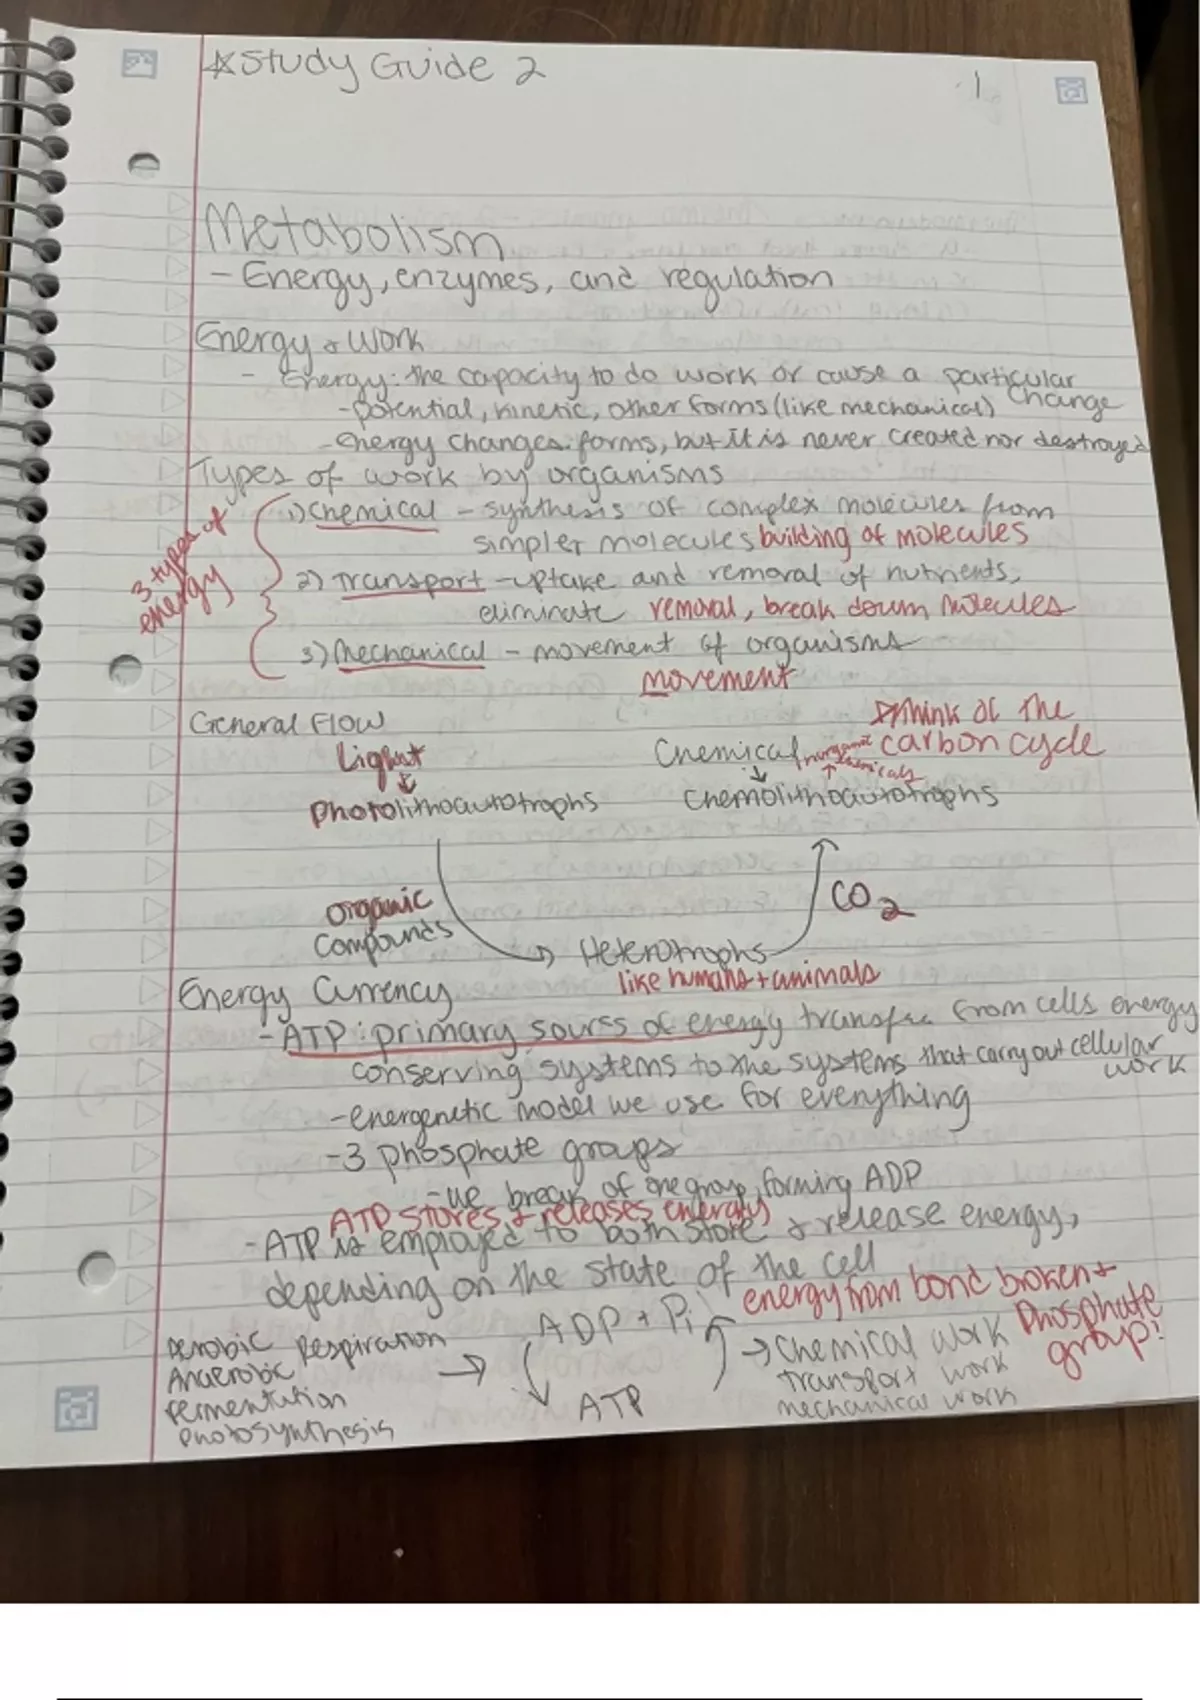 *Study Guide 2
1
Metabolism
- Energy, enzymes, and regulation
Energy & Work
- Energy: the capacity to do work or cause a particular change
- potential, kinetic, other forms (like mechanical)
- energy changes forms, but it is never created nor destroyed
Types of work by organisms
3 types of energy
1) Chemical - synthesis of complex molecules from
simpler molecules building of molecules
2) Transport - uptake and removal of nutrients,
eliminate removal, break down molecules
3) Mechanical - movement of organisms
movement
General Flow
Think of the
Light
Chemical inorganic carbon cycle
↓ ↓ ↑ chemicals
Photolithoautotrophs Chemolithoautotrophs
organic
compounds
CO2
→ Heterotrophs
like humans + animals
Energy Currency
- ATP: primary sourss of energy transfer from cells energy
conserving systems to the systems that carry out cellular
work
- energenetic model we use for everything
- 3 phosphate groups
- we break of one group, forming ADP
ATP stores & releases energy)
- ATP is employed to both store & release energy,
depending on the state of the cell
energy from bond broken +
phosphate
group!
Aerobic respiration
Anaerobic
fermentation
photosynthesis
→
ADP + Pi
ATP
→ Chemical work
transport work
mechanical work